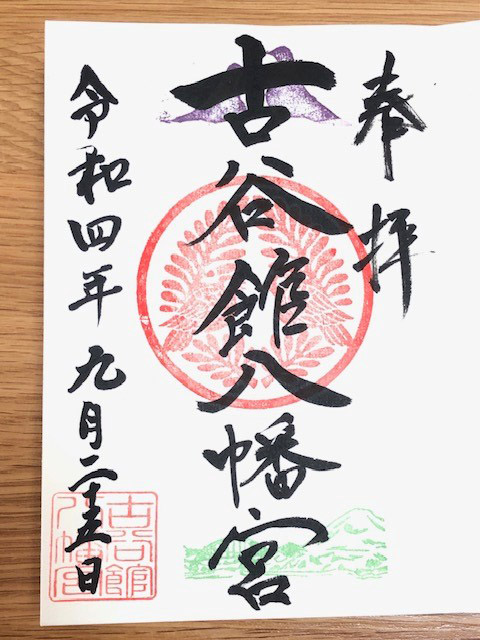 奉拝
古谷館八幡宮
令和四年九月二十五日
古谷館
八幡宮